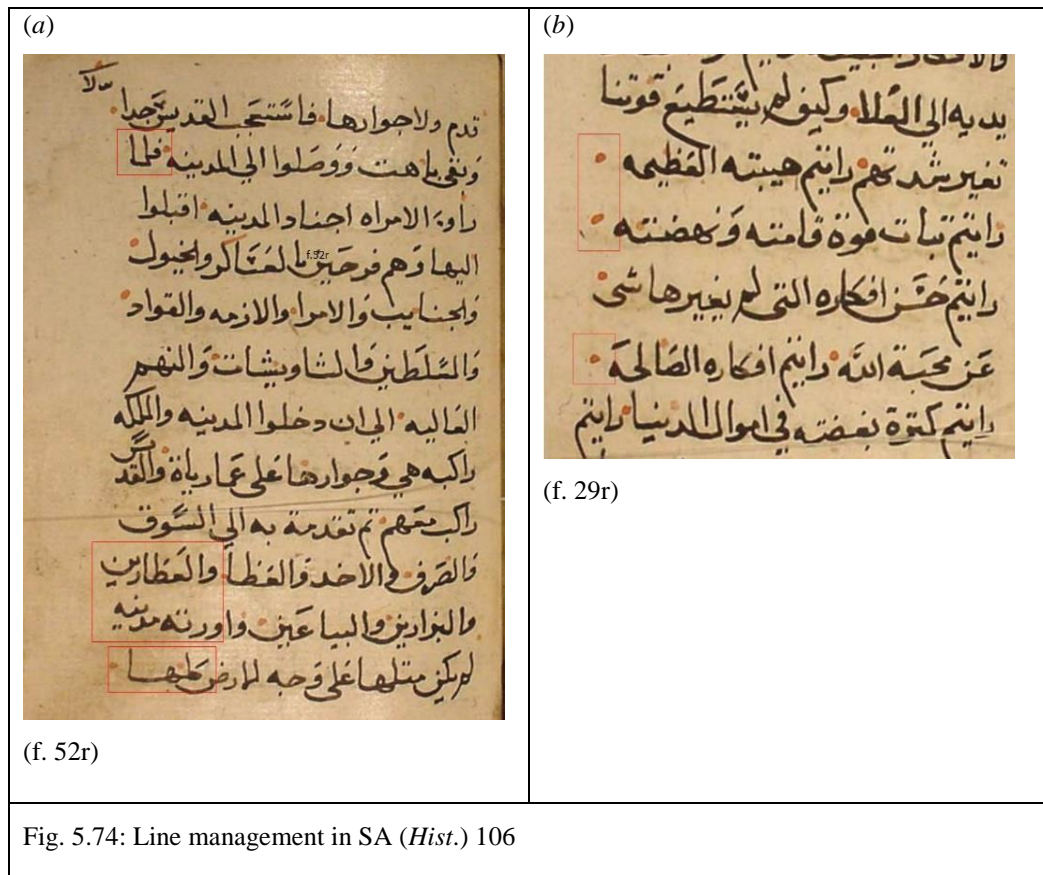 (a)
قدم ولا جوارها فاستعجب القديس جدا
وبقي باهت ووصلوا الي المدينه فلما
الامراه اجناد المدينه اقبلوا
اليها وهم فرحين بالعساكر والخيول
f.52r
والجنايب والامرا والازمه والقواد
والسلطين والشاويشات والنهم
العاليه الي ان دخلوا المدينه والملكه
راكبه هي وجوارها علي عمارياة والقديس
راكب معهم تم تقدمة به الي السوق
والصرف والاخد والعطا والعطارين
والبزارين والبياعين واورته مدينه
لم يكن متلها علي وجه الارض كلها
(f. 52r)
(b)
يديه الي العلا وكيف لم يستطيع قوتنا
تغير شدتهم رايتم هيبته العظيمه
رايتم تبات قوة قامته ونهضته
رايتم حسن افكاره التي لم يغيرها شي
عن محبة الله رايتم افكاره الصالحة
رايتم كترة بغضته في اموال الدنيا رايتم
(f. 29r)
Fig. 5.74: Line management in SA (Hist.) 106